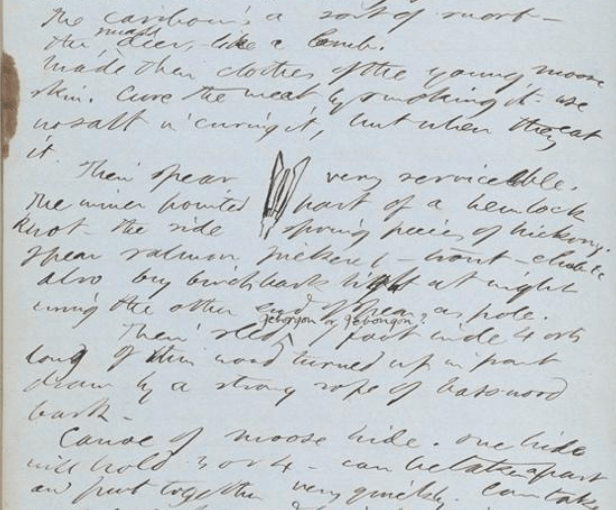 The caribou's a sort of
the small deer, like a lamb.
Made their clothes of the young moose
skin. Cure the meat by smoking it – use
no salt in curing it, but when they eat
it.
Their spear very serviceable.
The inner pointed part of a hemlock
knot – the side spring pieces of hickory.
Spear salmon pickerel – trout – chub &c
also by birch bark light at night
using the other end of spear as pole.
Their sled Jebongon or Jebongon? 1 foot wide 4 or 5
long of thin wood turned up in front
drawn by a strong rope of basswood
bark –
Canoe of moose hide. one hide
will hold 3 or 4 – can be taken apart
and put together very quickly. Can take